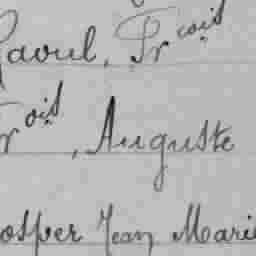 Raoul, Frçois
Frçois, Auguste
osper Jean Marie